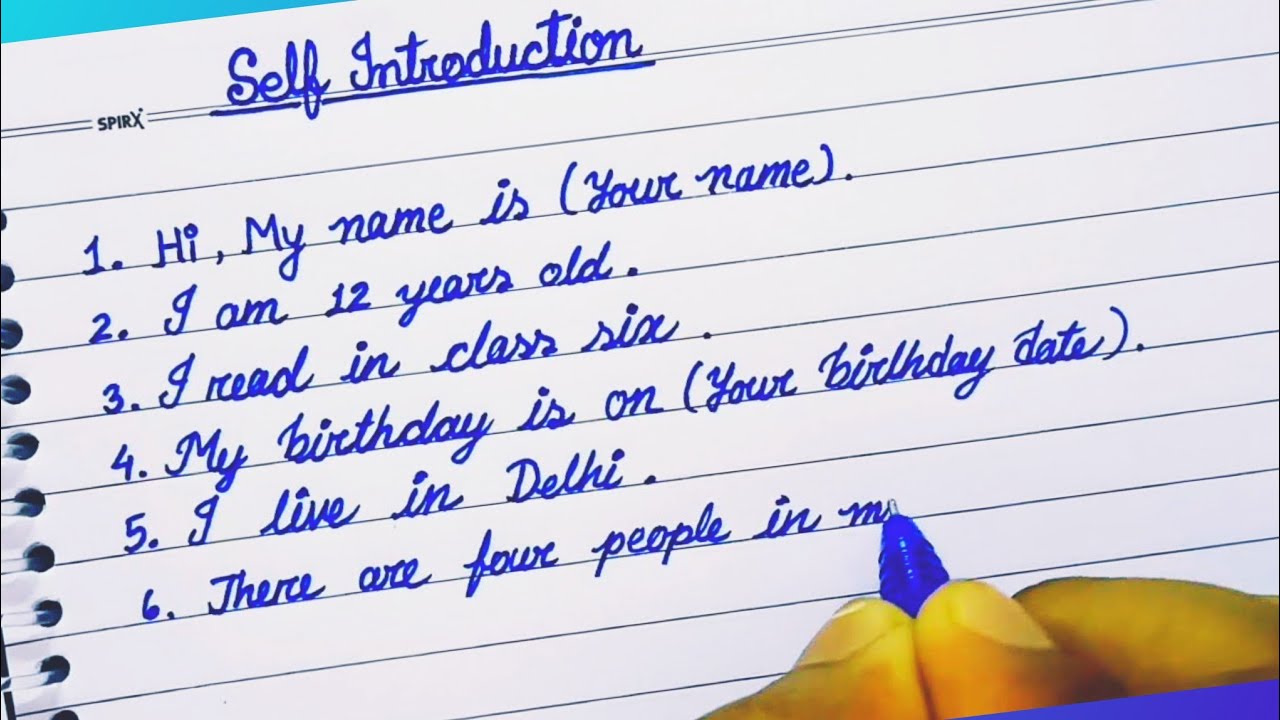 Self Introduction
SPIRX
1. Hi, My name is (Your name).
2. I am 12 years old.
3. I read in class six.
4. My birthday is on (Your birthday date).
5. I live in Delhi.
6. There are four people in m